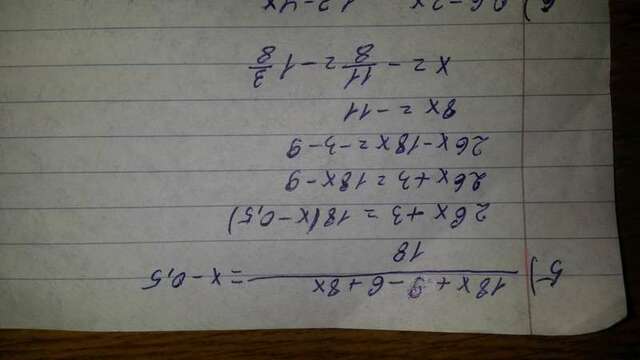 5) (18x + 9 - 6 + 8x)/18 = x - 0,5
26x + 3 = 18(x - 0,5)
26x + 3 = 18x - 9
26x - 18x = -3 - 9
8x = -11
x = - 11/8 = -1 3/8